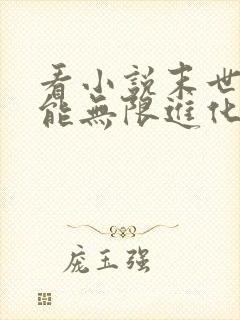 看小說末世
能無限進化
庞玉强